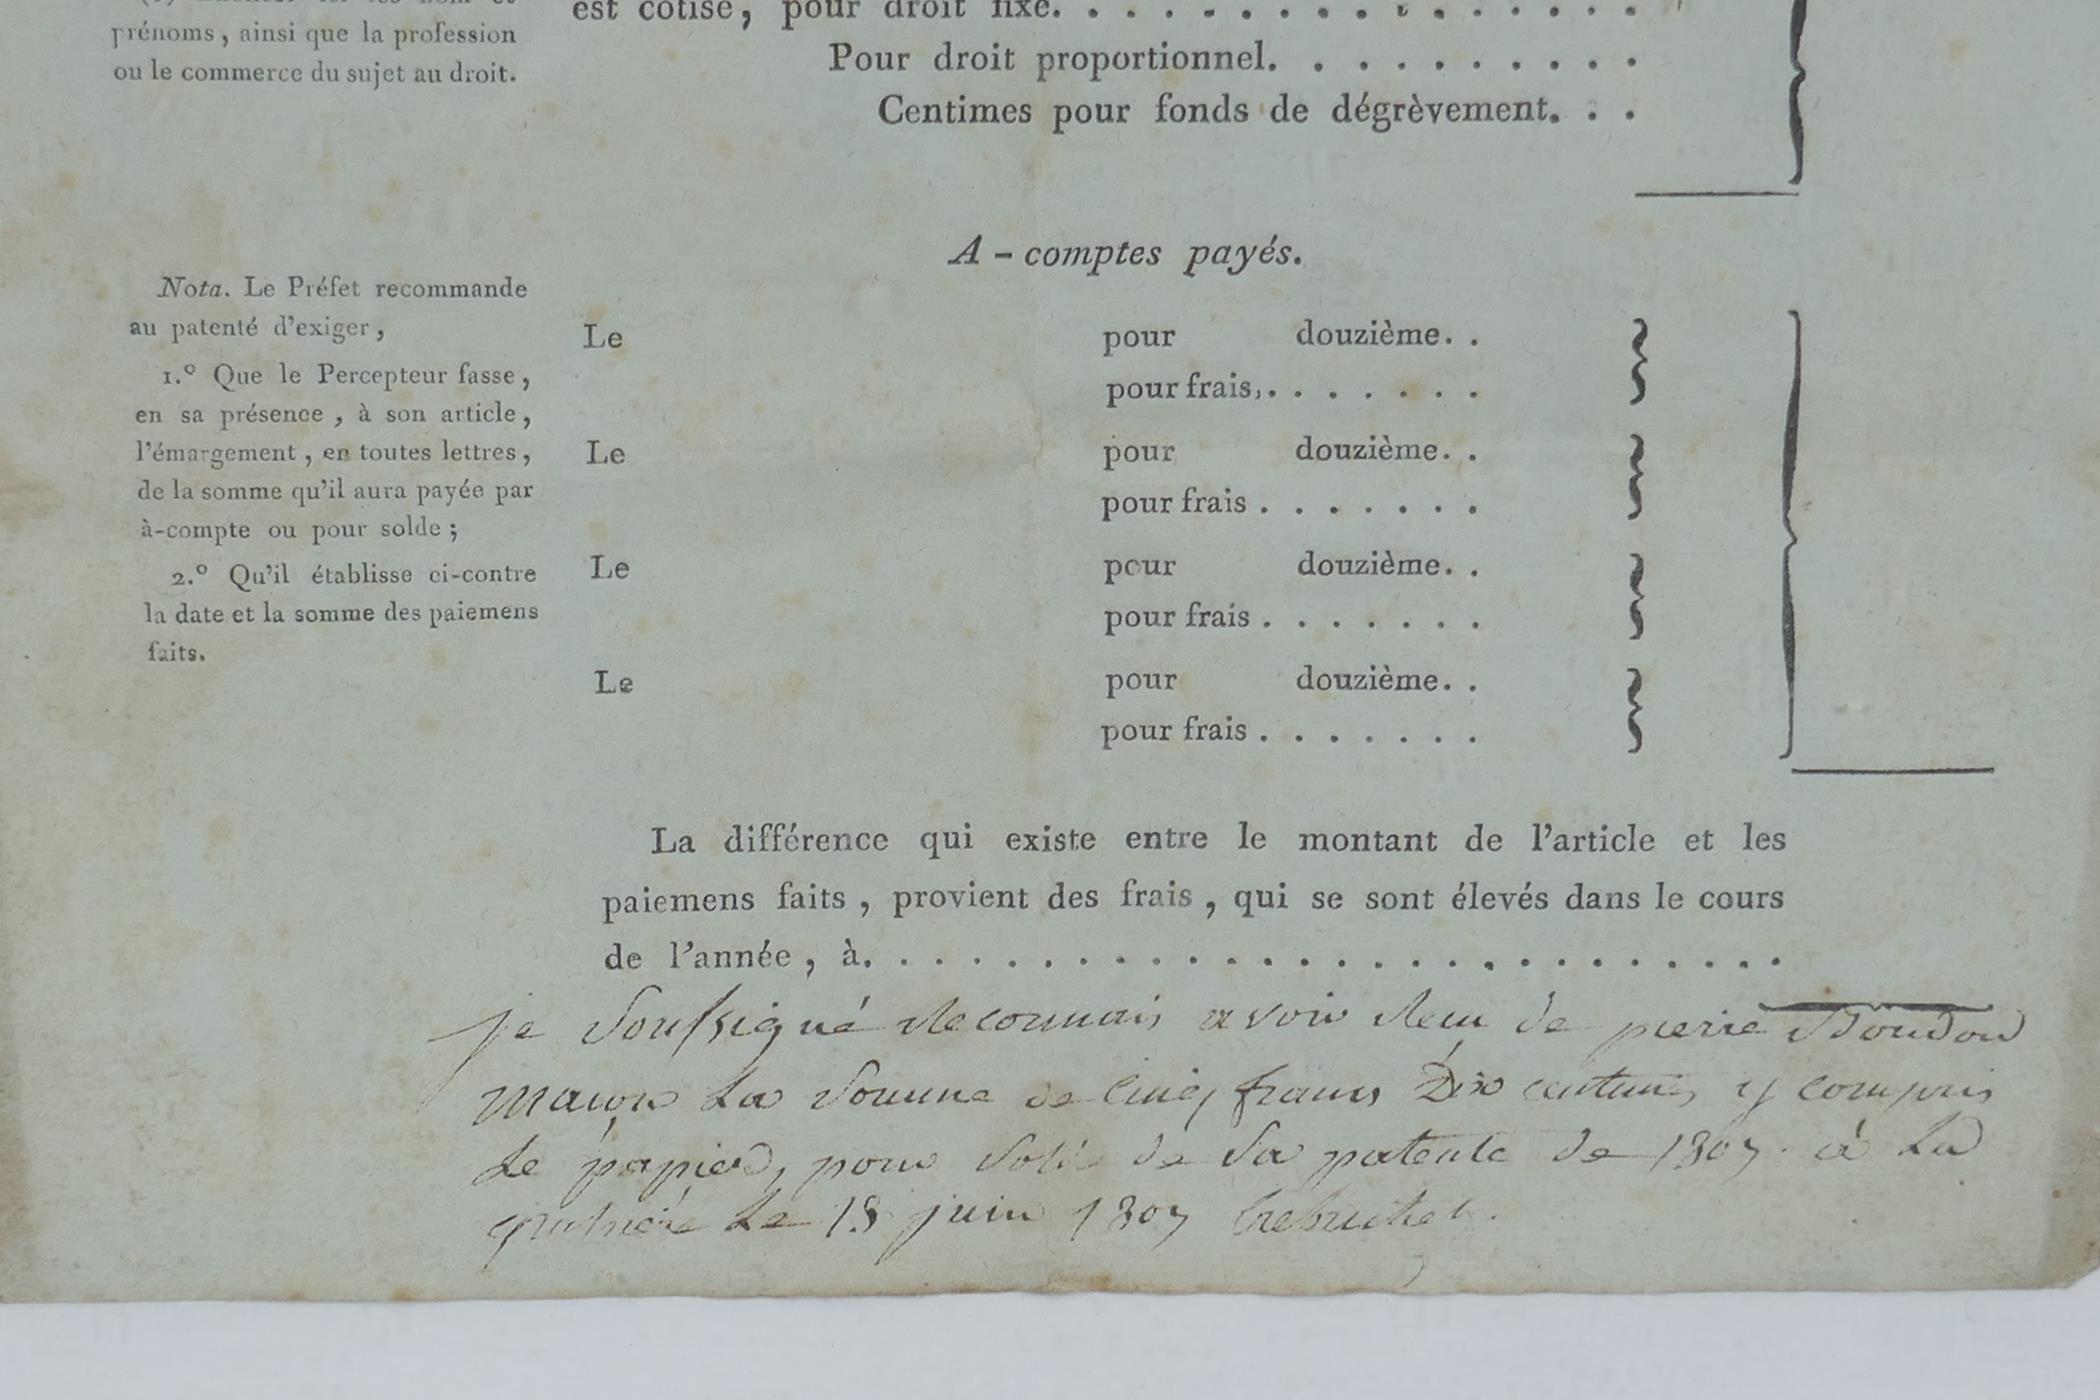 prénoms, ainsi que la profession
ou le commerce du sujet au droit.
est cotisé, pour droit fixe. . . . . . . . . . . . . . . . .
Pour droit proportionnel. . . . . . . . . . .
Centimes pour fonds de dégrèvement. . .
A-comptes payés.
Nota. Le Préfet recommande
au patenté d'exiger,
1.° Que le Percepteur fasse,
en sa présence, à son article,
l'émargement, en toutes lettres,
de la somme qu'il aura payée par
à-compte ou pour solde;
2.° Qu'il établisse ci-contre
la date et la somme des paiemens
faits.
Le pour douzième. .
pour frais,. . . . . . .
Le pour douzième. .
pour frais . . . . . . .
Le pour douzième. .
pour frais . . . . . . .
Le pour douzième. .
pour frais . . . . . . .
La différence qui existe entre le montant de l'article et les
paiemens faits, provient des frais, qui se sont élevés dans le cours
de l'année, à. . . . . . . . . . . . . . . . . . . . . . . . . .
je soussigné Reconnais avoir Recu de pierre Boudou
maçon La Somme de Cinq francs Dix centimes y compris
Le papier, pour Solde de Sa patente de 1807. à La
Le 18 juin 1807